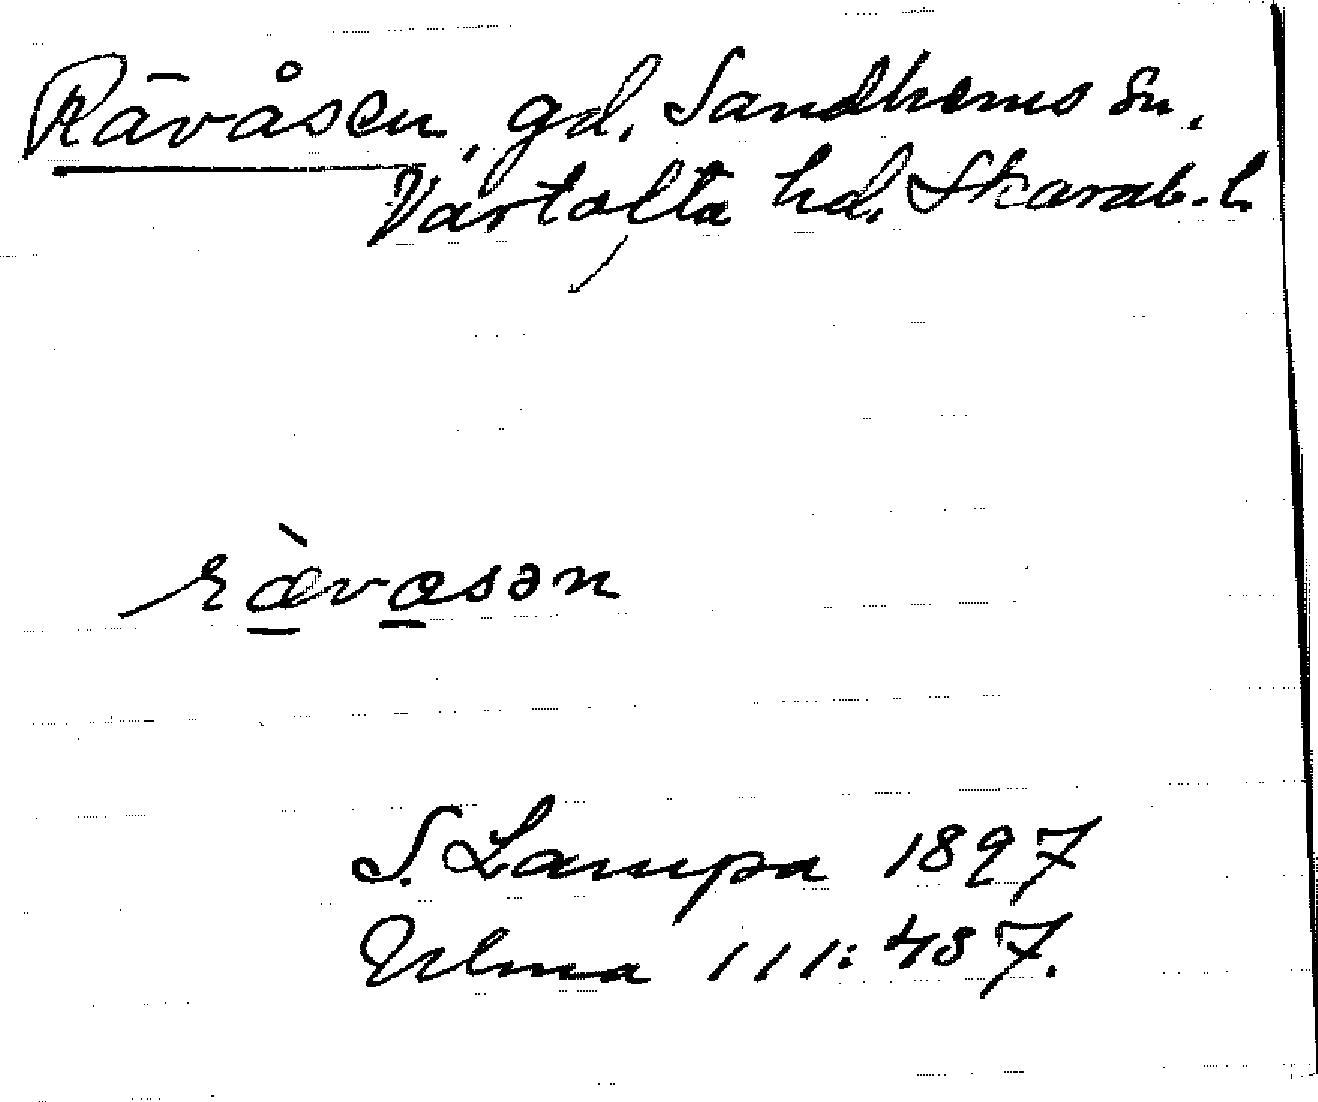 Rävåsen, gd. Sandhems sn.
Vartofta hd. Skarab. l.
rævåsən
S. Lampa 1897
Ulma 111:487.